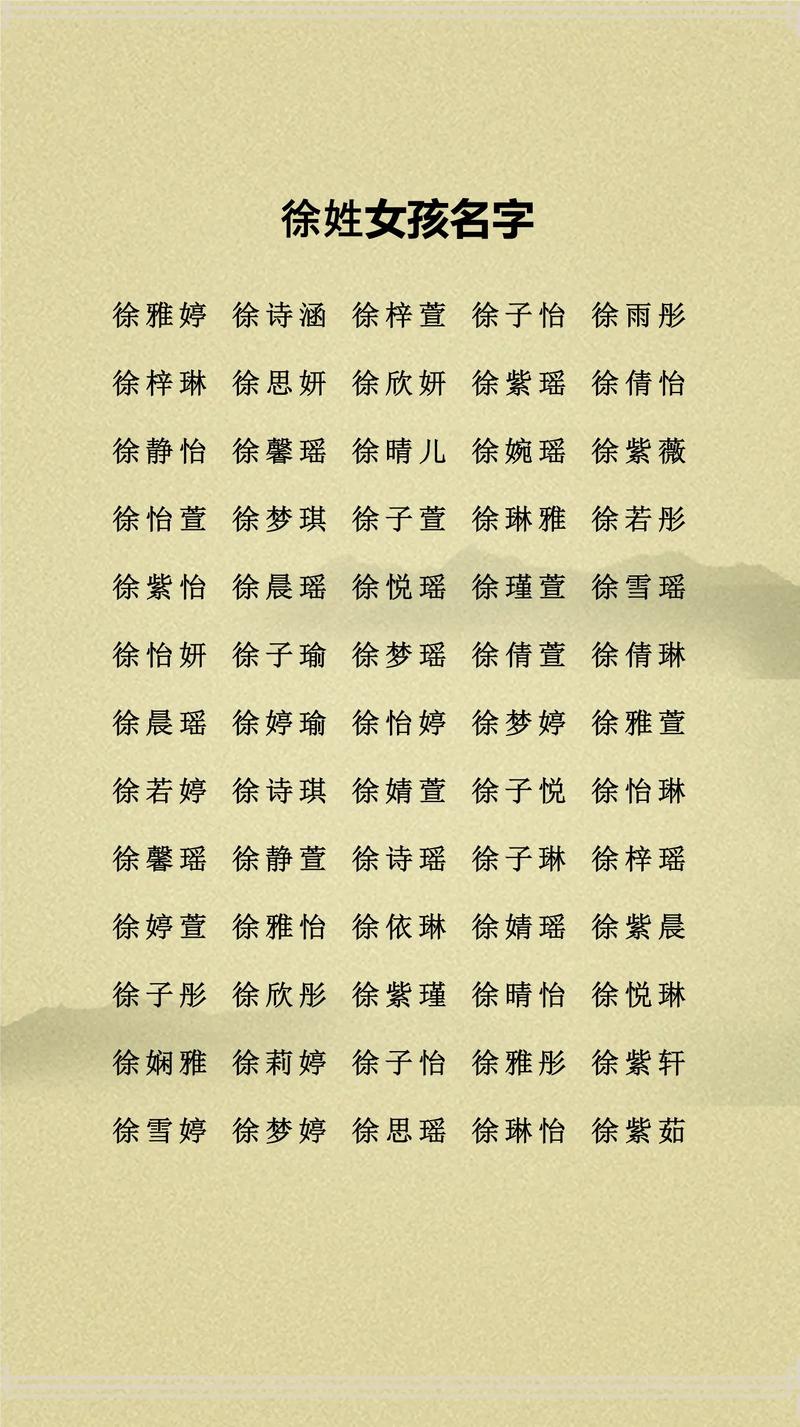 徐姓女孩名字
徐雅婷 徐诗涵 徐梓萱 徐子怡 徐雨彤
徐梓琳 徐思妍 徐欣妍 徐紫瑶 徐倩怡
徐静怡 徐馨瑶 徐晴儿 徐婉瑶 徐紫薇
徐怡萱 徐梦琪 徐子萱 徐琳雅 徐若彤
徐紫怡 徐晨瑶 徐悦瑶 徐瑾萱 徐雪瑶
徐怡妍 徐子瑜 徐梦瑶 徐倩萱 徐倩琳
徐晨瑶 徐婷瑜 徐怡婷 徐梦婷 徐雅萱
徐若婷 徐诗琪 徐婧萱 徐子悦 徐怡琳
徐馨瑶 徐静萱 徐诗瑶 徐子琳 徐梓瑶
徐婷萱 徐雅怡 徐依琳 徐婧瑶 徐紫晨
徐子彤 徐欣彤 徐紫瑾 徐晴怡 徐悦琳
徐娴雅 徐莉婷 徐子怡 徐雅彤 徐紫轩
徐雪婷 徐梦婷 徐思瑶 徐琳怡 徐紫茹